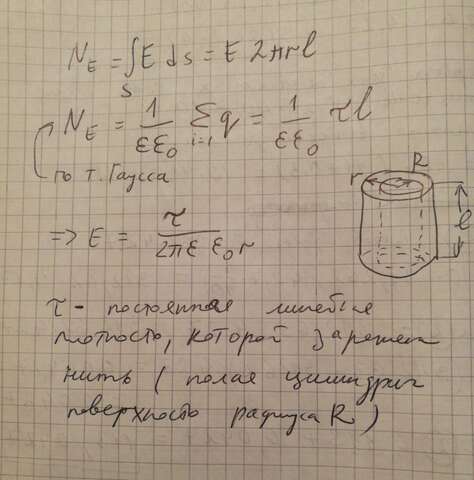 N_E = ∫_S E ds = E 2πrl
N_E = 1/εε₀ Σ_{i=1} q = 1/εε₀ τl
по т. Гаусса
=> E = τ/2πε ε₀ r
r R l
τ - постоянная линейная
плотность, которой заряжен
нить (полая цилиндрич
поверхность радиуса R)